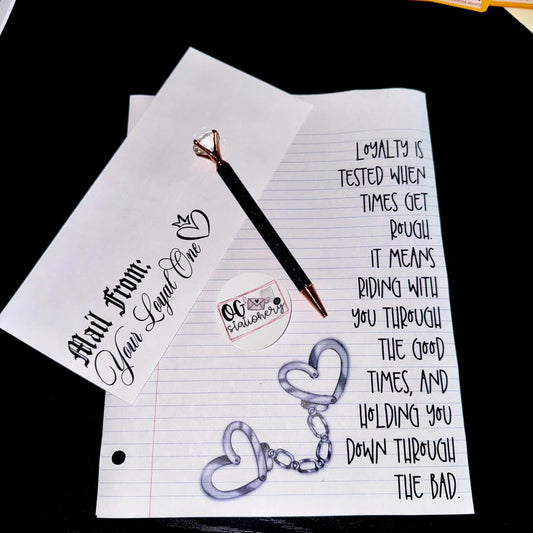 Mail From:
Your Loyal One
OG
stationery
LOYALTY IS
TESTED WHEN
TIMES GET
ROUGH.
IT MEANS
RIDING WITH
YOU THROUGH
THE GOOD
TIMES, AND
HOLDING YOU
DOWN THROUGH
THE BAD.